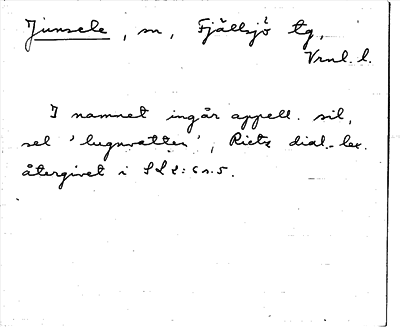 Junsele, sn, Fjällsjö tg,
Vrnl. l.
I namnet ingår appell. sil,
sel 'lugnvatten', Rietz dial.-lex.
återgivet i SL 2: s.5.